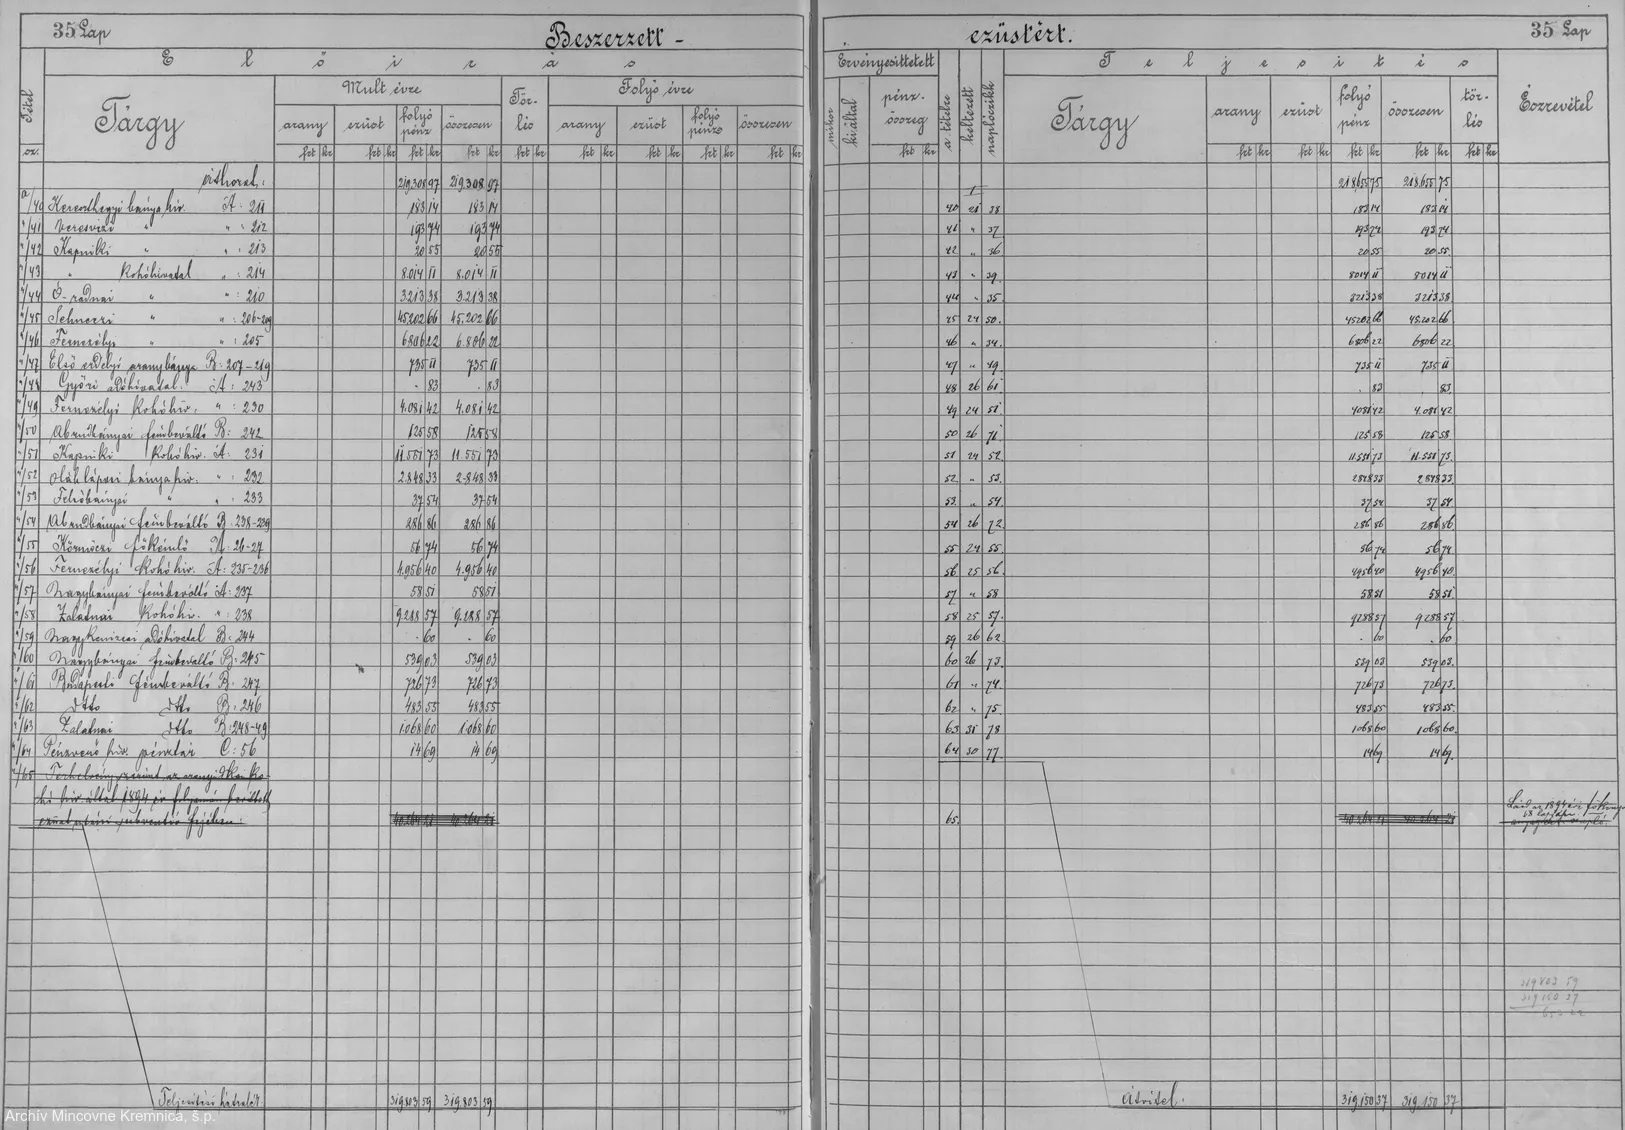 35 Lap
Beszerzett -
ezüstért.
35 Lap
Előirás
Érvényesittetett
Teljesités
Tétel sz.
Tárgy
Mult évre
Törlés
Folyó évre
mikor
ki által
pénzösszeg
a tételre
keltezett
naplóczikk
Tárgy
arany
ezüst
folyó pénz
összesen
törlés
Észrevétel
arany
ezüst
folyó pénz
összesen
arany
ezüst
folyó pénz
összesen
frt kr frt kr frt kr frt kr frt kr frt kr frt kr frt kr frt kr
frt kr frt kr frt kr frt kr frt kr frt kr
áthozat: 219.308 97 219.308 97 218655 75 218655 75
a/40 Kereszthegyi bánya hiv. A: 211 183 14 183 14 40 21 38 183 14 183 14
"/41 Veresvizi " " : 212 193 74 193 74 41 " 37 193 74 193 74
"/42 Kapniki " " : 213 20 55 20 55 42 " 36 20 55 20 55
"/43 " Kohóhivatal " : 214 8.014 11 8.014 11 43 " 39 8014 11 8014 11
"/44 Ó-radnai " " : 210 3213 38 3.213 38 44 " 35 3213 38 3213 38
"/45 " " : 206-209 45202 66 45.202 66 45 24 50 45202 66 45.202 66
"/46 Fernezélyi " " : 205 6806 22 6.806 22 46 " 34 6806 22 6806 22
"/47 Első erdélyi aranybánya B: 207-219 735 11 735 11 47 " 49 735 11 735 11
"/48 Győri adóhivatal A: 243 . 83 . 83 48 26 61 . 83 83
"/49 Fernezélyi Kohóhiv. " : 230 4.081 42 4.081 42 49 24 51 4081 42 4.081 42
"/50 Abrudbányai fémbeváltó B: 242 125 58 125 58 50 26 71 125 58 125 58
"/51 Kapniki Kohóhiv. A: 231 11.551 73 11.551 73 51 24 52 11.551 73 11.551 73
"/52 Oláhláposi bánya hiv. " : 232 2.848 33 2.848 33 52 " 53 2848 33 2848 33
"/53 Felsőbányai " " : 233 37 54 37 54 53 " 54 37 54 37 54
"/54 Abrudbányai fémbeváltó B: 238-239 286 86 286 86 54 26 72 286 86 286 86
"/55 Körmöczi főkémlő A: 26-27 56 74 56 74 55 24 55 56 74 56 74
"/56 Fernezélyi Kohóhiv. A: 235-236 4.956 40 4.956 40 56 25 56 4956 40 4956 40
"/57 Nagybányai fémbeváltó A: 237 58 51 58 51 57 " 58 58 51 58 51
"/58 Zalatnai Kohóhiv. " : 238 9.288 57 9.288 57 58 25 57 9288 57 9288 57
"/59 Nagykanizsai adóhivatal B: 244 . 60 . 60 59 26 62 . 60 . 60
"/60 Nagybányai fémbeváltó B: 245 539 03 539 03 60 26 73 539 03 539 03
"/61 Budapesti fémbeváltó B: 247 726 73 726 73 61 " 74 726 73 726 73
"/62 dtto dtto B: 246 483 55 483 55 62 " 75 483 55 483 55
"/63 Zalatnai dtto B: 248-49 1.068 60 1.068 60 63 31 78 1068 60 1068 60
"/64 Pénzverő hiv. pénztár C: 56 14 69 14 69 64 30 77 14 69 14 69
"/65 az aranyidkai ko-
hó hiv. által 1894 év folyamán beváltott
65.
Lásd az 1894 évi főkönyv
Teljesitési hátralék: 319.803 59 319.803 59
Átvitel: 319.150 37 319.150 37
319803 59
319150 37
653 22
Archív Mincovne Kremnica, š.p.